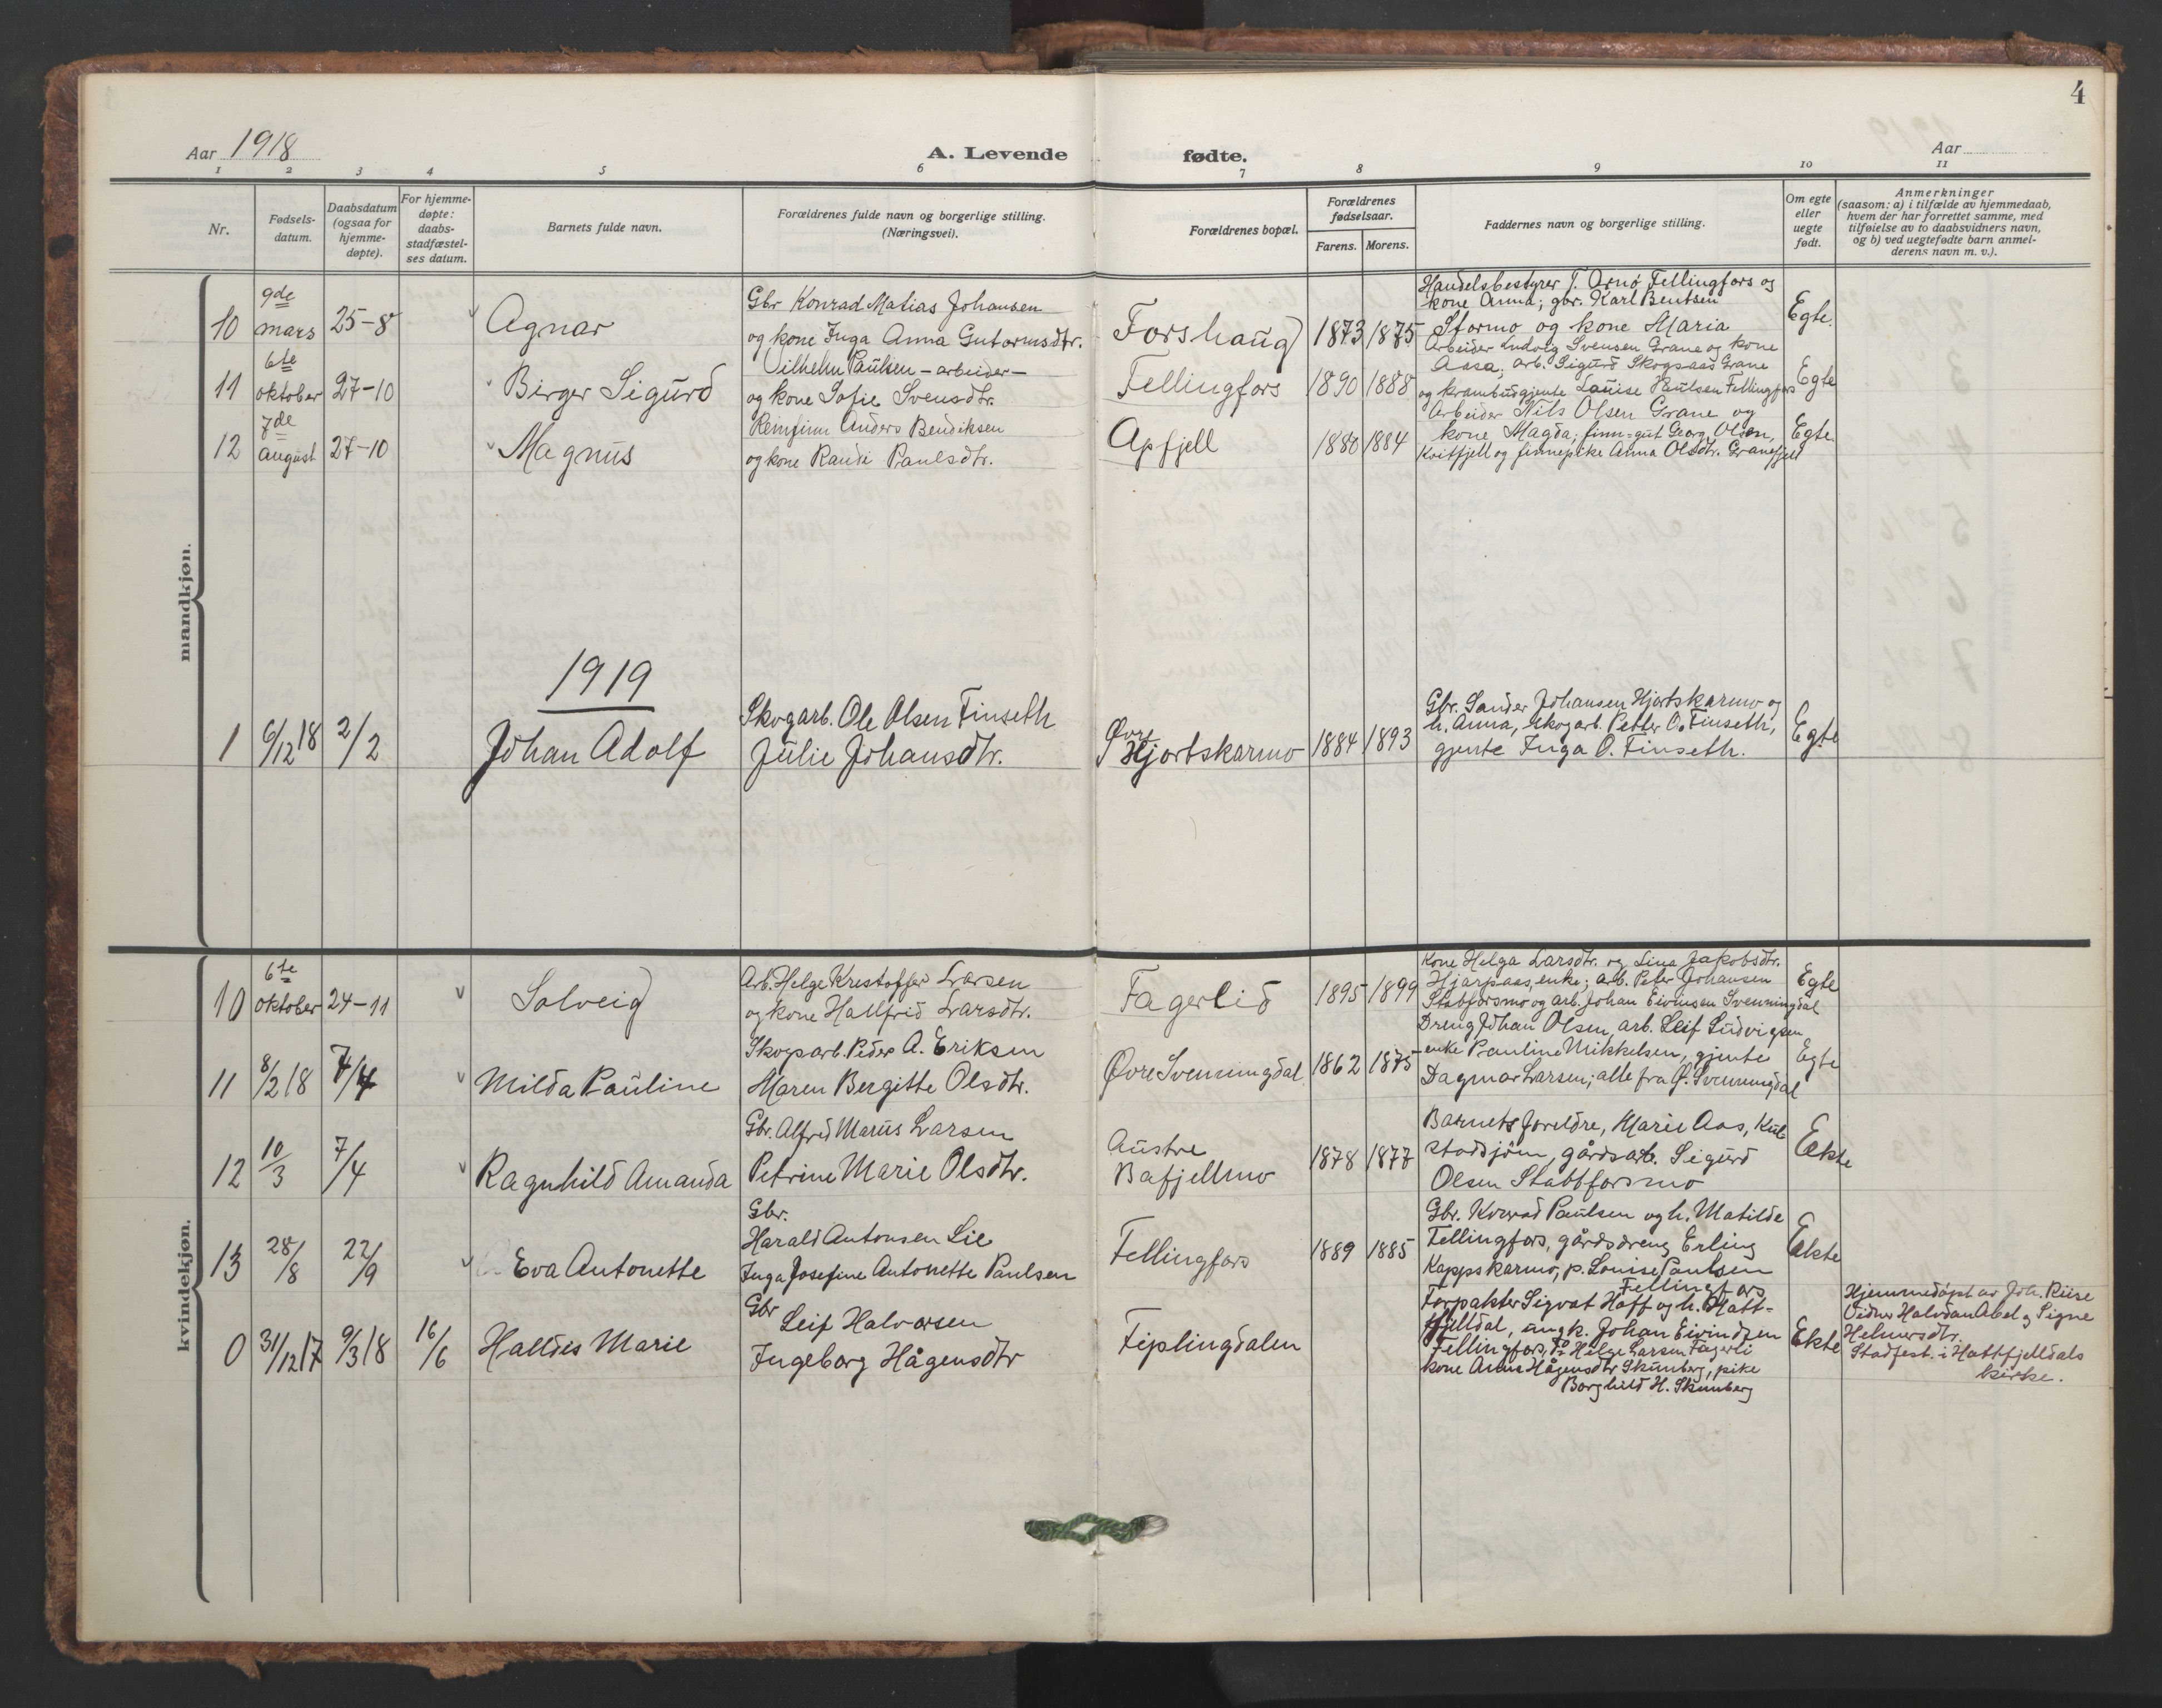 4
Aar 1918
A. Levende fødte.
Aar
1 2 3 4 5 6 7 8 9 10 11
Nr.
Fødsels-
datum.
Daabsdatum
(ogsaa for
hjemme-
døpte).
For hjemme-
døpte:
daabs-
stadfæstel-
ses datum.
Barnets fulde navn.
Forældrenes fulde navn og borgerlige stilling.
(Næringsvei).
Forældrenes bopæl.
Forældrenes
fødselsaar.
Farens. Morens.
Faddernes navn og borgerlige stilling.
Om egte
eller
uegte
født.
Anmerkninger
(saasom: a) i tilfælde av hjemmedaab,
hvem der har forrettet samme, med
tilføielse av to daabsvidners navn,
og b) ved uegtefødte barn anmel-
derens navn m. v.).
mandkjøn.
10
9de
mars
25-8
Agnar
Gbr Konrad Matias Johansen
og kone Inga Anna Gutormsdtr.
Forshaug
1873 1875
Handelsbestyrer T. Arnø Fellingfors og
kone Anna; gbr. Karl Bentsen
Stormo og kone Maria
Egte.
11
6te
oktober
27-10
Birger Sigurd
Vilhelm Paulsen - arbeider -
og kone Sofie Svensdtr.
Fellingfors
1890 1888
Arbeider Ludvig Svensen Grane og kone
Aasa; arb. Sigurd Skogsaas Grane
og krambudgjente Lauise Paulsen Fellingfors
Egte
12
7de
august
27-10
Magnus
Reinfinn Anders Bendiksen
og kone Randi Paulsdtr.
Apfjell
1880 1884
Arbeider Nils Olsen Grane og
kone Magda; finn-gut Georg Olsen,
Kvitfjell og finnepike Anna Olsdtr. Granefjell
Egte
1919
1
6/12 18
2/2
Johan Adolf
Skogarb. Ole Olsen Finseth
Julie Johansdtr.
Øvre
Hjortskarmo
1884 1893
Gbr. Sander Johansen Hjortskarmo og
h. Anna, skogarb. Petter O. Finseth,
gjente Inga O. Finseth.
Egte
kvindekjøn.
10
6te
oktober
24-11
Solveig
Arb. Helge Krestoffer Larsen
og kone Hallfrid Larsdtr.
Fagerlid
1895 1899
Kone Helga Larsdtr. og Lina Jakobsdtr.
Hjarpaas, enke; arb. Peter Johansen
Stabforsmo og arb. Johan Eivinsen Svenningdal
Egte
11
8/2 18
7/4
Milda Pauline
Skogsarb. Peder A. Eriksen
Maren Bergitte Olsdtr.
Øvre Svenningdal
1862 1875
Dreng Johan Olsen, arb. Leif Ludvigsen
enke Pauline Mikkelsen, gjente
Dagmar Larsen; alle fra Ø. Svenningdal
Egte
12
10/3
7/4
Ragnhild Amanda
Gbr. Alfred Marius Larsen
Petrine Marie Olsdtr.
Austre
Bafjellmo
1878 1877
Barnets foreldre, Marie Aas, Kul-
stadsjöen, gårdsarb. Sigurd
Olsen Stabbforsmo
Ekte
13
28/8
22/9
Eva Antonette
Gbr.
Harald Antonsen Lie
Inga Josefine Antonette Paulsen
Fellingfors
1889 1885
Gbr. Konrad Paulsen og h. Matilde
Fellingfors, gårdsdreng Erling
Kappskarmo, p. Louise Paulsen
Fellingfors
Ekte
0
31/12 17
9/3 18
16/6
Halldis Marie
Gbr
Leif Halvorsen
Ingeborg Hågensdtr
Fiplingdalen
Forpakter Sigvat Hoff og h. Hatt-
fjelldal, ungk. Johan Eivindsen
Fellingfors, do Helge Larsen Fagerli
kone Anna Hågensdtr Skumberg, pike
Borghild H. Skumberg
Ekte
Hjemmedöpt av Joh. Riise
Vidner Halvdan Abel og Signe
Helmersdtr.
Stadfest. i Hattfjelldals
kirke.